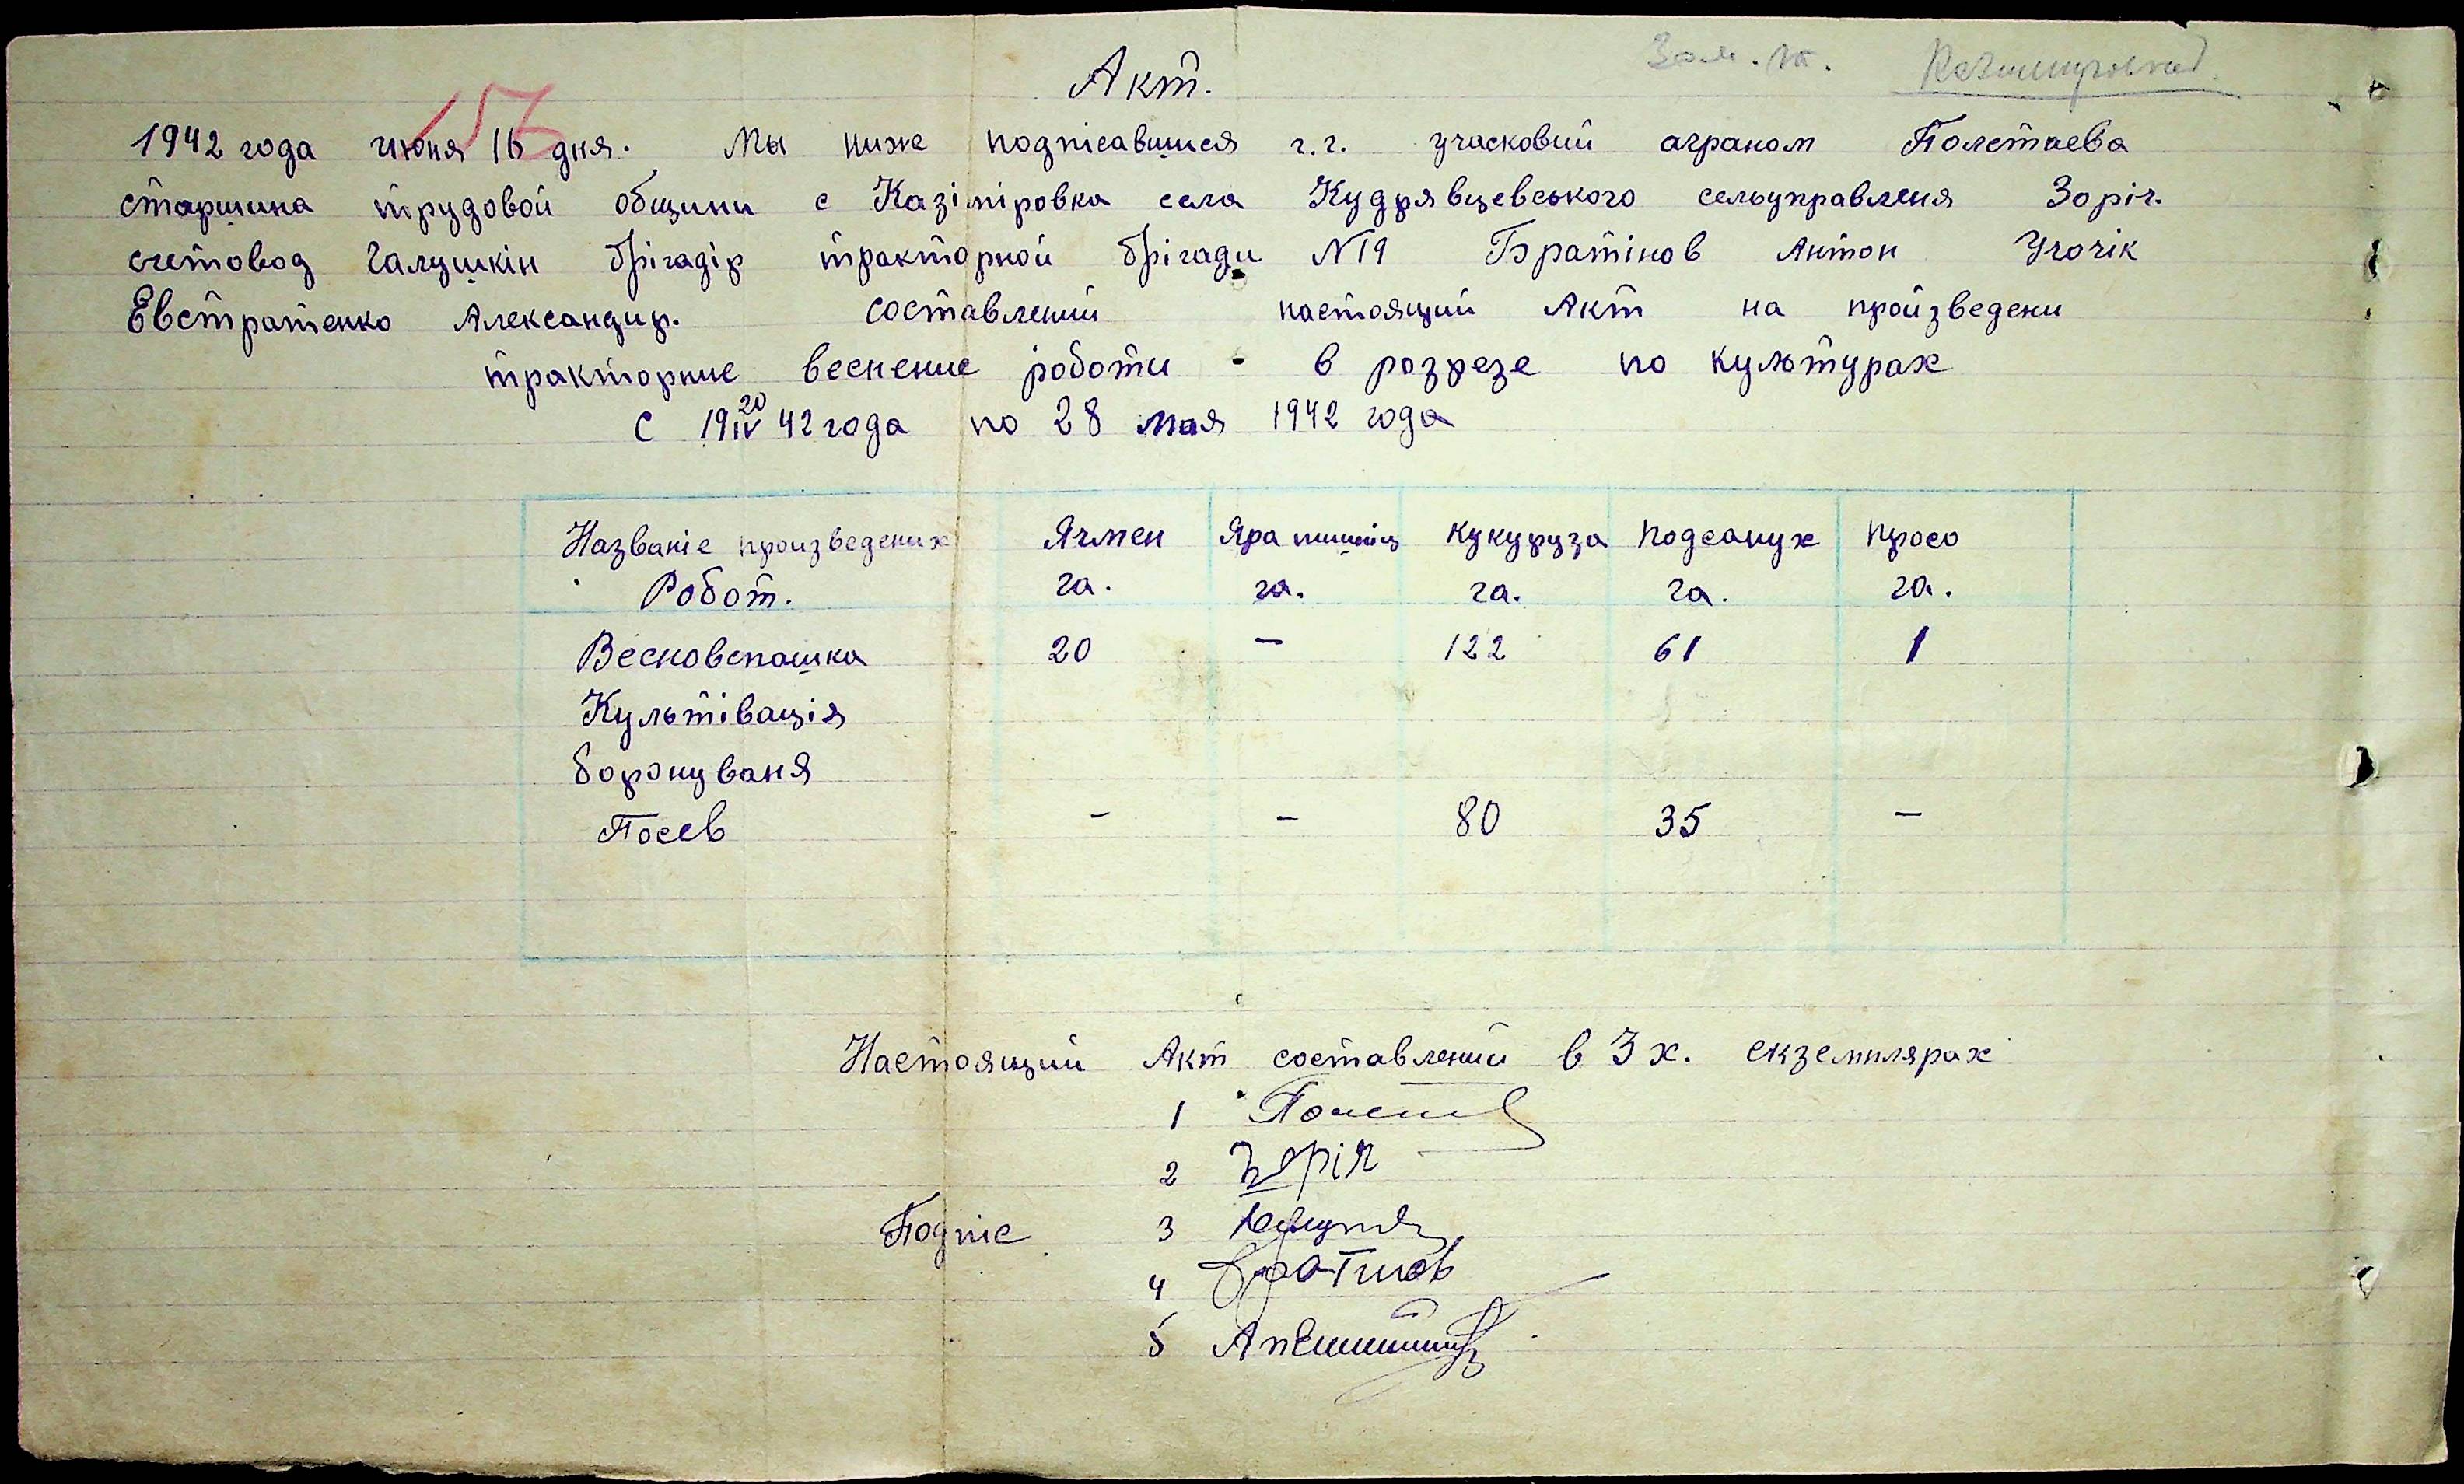 Акт.
1942 года июня 16 дня. Мы ниже подпісавшиеся г.г. учасковий аграном Полетаева
старшина трудовой общини с Казіміровка села Кудрявцевського сельуправленя Зоріч.
счетовод Галушкін брігадір тракторной брігади N19 Братінов Антон Учочік
Евстратенко Александир. составлений настоящий Акт на произведени
тракторние весенение роботи - в розрезе по культурах
С 19 20/IV 42 года по 28 мая 1942 года
Названіе произведених Ячмен Яра пшениц Кукуруза Подсанух Просо
Робот. га. га. га. га. га.
Весновспашка 20 - 122 61 1
Культівація
боронуваня
Посев - - 80 35 -
Настоящий Акт составлений в 3х. екземплярах
1
2 Зоріч
Подпіс 3
4 Братинов
5